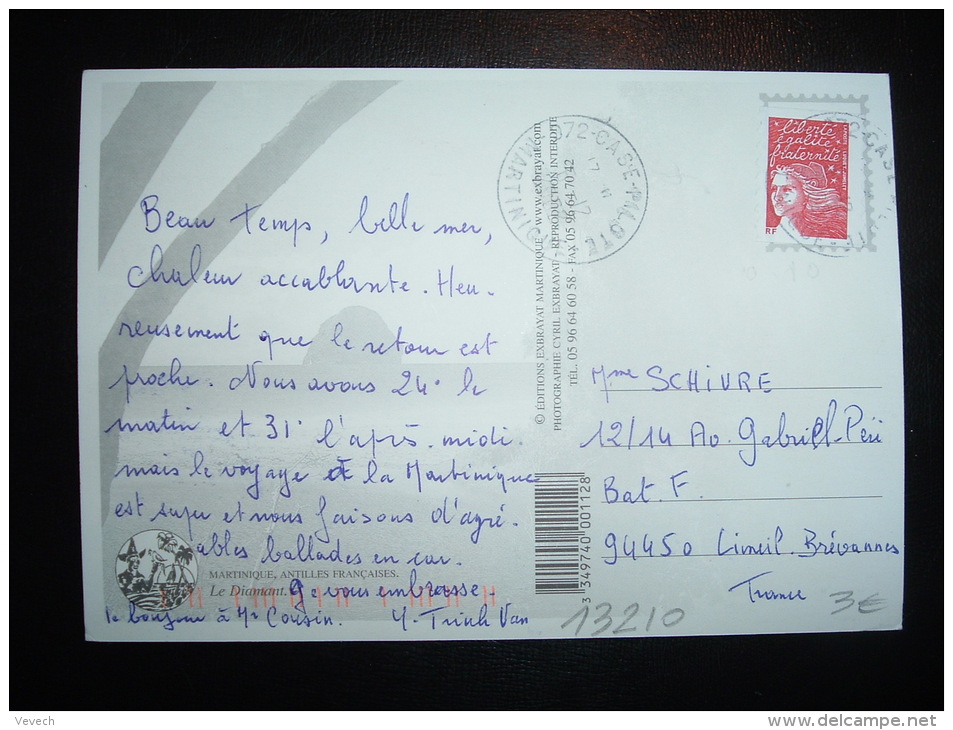 Beau temps, belle mer,
chaleur accablante. Heu-
reusement que le retour est
proche. Nous avons 24° le
matin et 31° l'après-midi.
mais le voyage et la Martinique
est super et nous faisons d'agré-
ables ballades en car.
MARTINIQUE, ANTILLES FRANÇAISES.
Le Diamant.
Je vous embrasse-
le bonjour à Mr Cousin. Y. Trinh Van
© ÉDITIONS EXBRAYAT MARTINIQUE - www.exbrayat.com
PHOTOGRAPHIE CYRIL EXBRAYAT - REPRODUCTION INTERDITE
TÉL. 05 96 64 60 58 - FAX 05 96 64 70 42
972-CASE-PILOTE
MARTINIQUE
liberté
égalité
fraternité
RF
Mme SCHIVRE
12/14 Av. Gabriel-Péri
Bat. F.
94450 Limeil-Brévannes
France
3 349740 001128
13210
3€
Vevech
http://www.delcampe.net